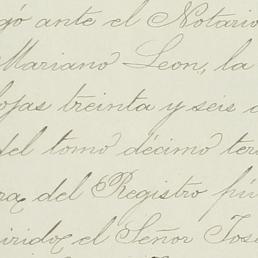 gó ante el Notario
Mariano Leon, la
fojas treinta y seis
del tomo décimo ter
del Registro pú
el Señor José